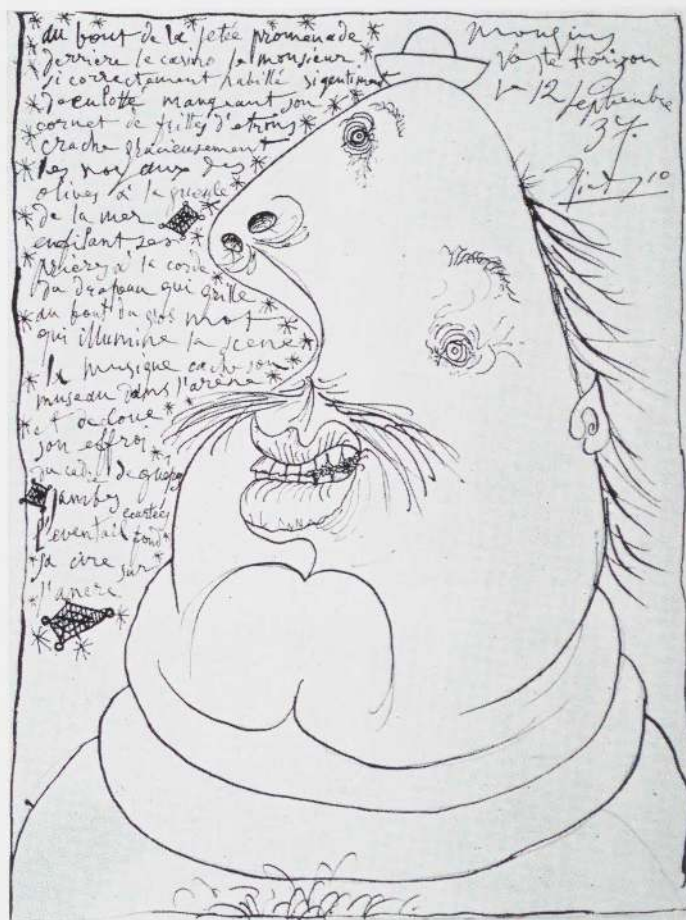 au bout de la jetée promenade
derrière le casino le monsieur
si correctement habillé si gentiment
déculotté mangeant son
cornet de frites d'etrons
crache gracieusement
les noyaux des
olives à la gueule
de la mer
enfilant ses
prières à la corde
du drapeau qui grille
au bout du gros mot
qui illumine la scene
la musique cache son
museau dans l'arène
et decloue
son effroi
du cadre de guepes
jambes ecartées
l'eventail fond
sa cire sur
l'ancre
Mougins
Vaste Horizon
le 12 septembre
37.
Picasso